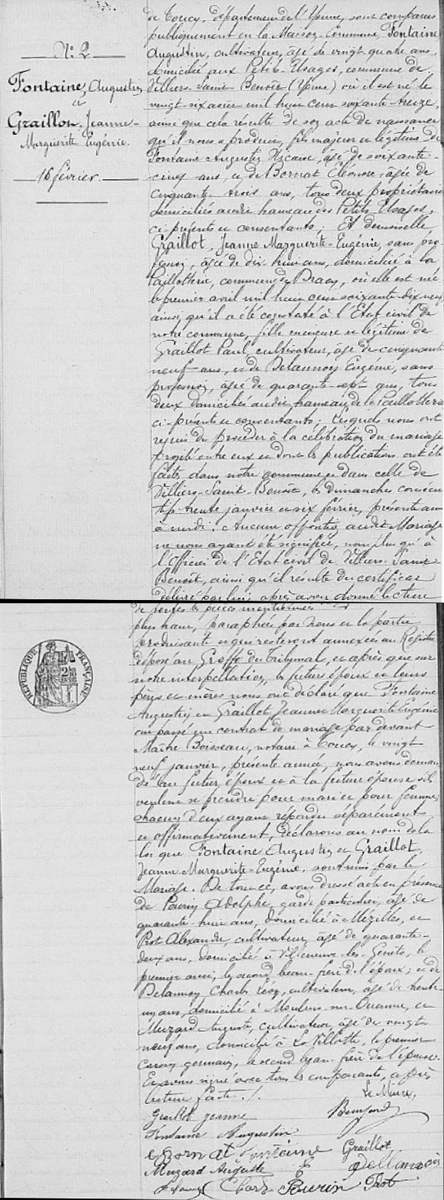 N° 2
Fontaine, Augustin
et
Graillot, Jeanne-
Marguerite Eugénie.
16 février.
de Toucy, département de l'Yonne, sont comparus
publiquement en la Maison commune, Fontaine
Augustin, cultivateur, âgé de vingt quatre ans,
domicilié aux Petits Usages, commune de
Villiers Saint Benoît (Yonne) où il est né le
vingt six mil huit cent soixante treize,
ainsi que cela résulte de son acte de naissance
qu'il nous a produit, fils majeur et légitime de
Fontaine Augustin âgé de soixante
cinq ans, et de Bornat Eléonore, âgée de
cinquante trois ans, tous deux propriétaires
domiciliés audit hameau des Petits Usages,
ci présents et consentants; Et demoiselle
Graillot, Jeanne Marguerite-Eugénie, sans pro
fession, âgée de dix huit ans, domiciliée à la
commune de où elle est née
le premier avril mil huit cent soixante dix neuf
ainsi qu'il a été constaté à l'Etat civil de
notre commune, fille mineure et légitime de
Graillot Paul, cultivateur, âgé de cinquante
neuf ans, et de Delannoy Eugénie, sans
profession, âgée de quarante sept ans, tous
deux domiciliés audit hameau de la
ci présents et consentants; Lesquels nous ont
requis de procéder à la célébration du mariage
projeté entre eux et dont les publications ont été
faites dans notre commune et dans celle de
Villiers-Saint Benoît, les dimanches consécu
tifs trente janvier et six février, présente année
à midi. Aucune opposition audit Mariage
ne nous ayant été signifiée, non plus qu'à
l'Officier de l'Etat civil de Villiers Saint
Benoît, ainsi qu'il résulte du certificat
délivré par lui, après avoir donné lecture
de toutes les pièces mentionnées
RÉPUBLIQUE FRANÇAISE
plus haut, paraphées par nous et la partie
produisante et qui resteront annexées au Registre
déposé au Greffe du Tribunal, et après que sur
notre interpellation, les futurs époux et leurs
pères et mères nous ont déclaré que Fontaine
Augustin et Graillot Jeanne Marguerite Eugénie
ont passé un contrat de mariage par devant
Maître Boisseau, notaire à Toucy, le vingt
neuf janvier, présente année, nous avons deman
dé au futur époux et à la future épouse s'ils
veulent se prendre pour mari et pour femme,
chacun d'eux ayant répondu séparément
et affirmativement, déclarons au nom de la
loi que Fontaine Augustin et Graillot,
Jeanne Marguerite Eugénie, sont unis par le
Mariage. De tout ce, avons dressé acte en présence
de Adolphe, garde particulier, âgé de
quarante huit ans, domicilié à Mézilles, et
Prot Alexandre, cultivateur, âgé de quarante
deux ans, domicilié à Villeneuve les Genêts, le
premier ami, le second beau-frère de l'époux; et de
Delannoy Charles cultivateur, âgé de trente
ans, domicilié à Moulins sur Ouanne, et
Muzard Auguste, cultivateur, âgé de vingt
neuf ans, domicilié à La Villotte, le premier
cousin germain, le second beau frère de l'épouse.
Et avons signé avec tous les comparants, après
lecture faite.
Le Maire,
Graillot Jeanne
Fontaine Augustin
Bornat Fontaine Graillot
Muzard Auguste Delannoy
Prot